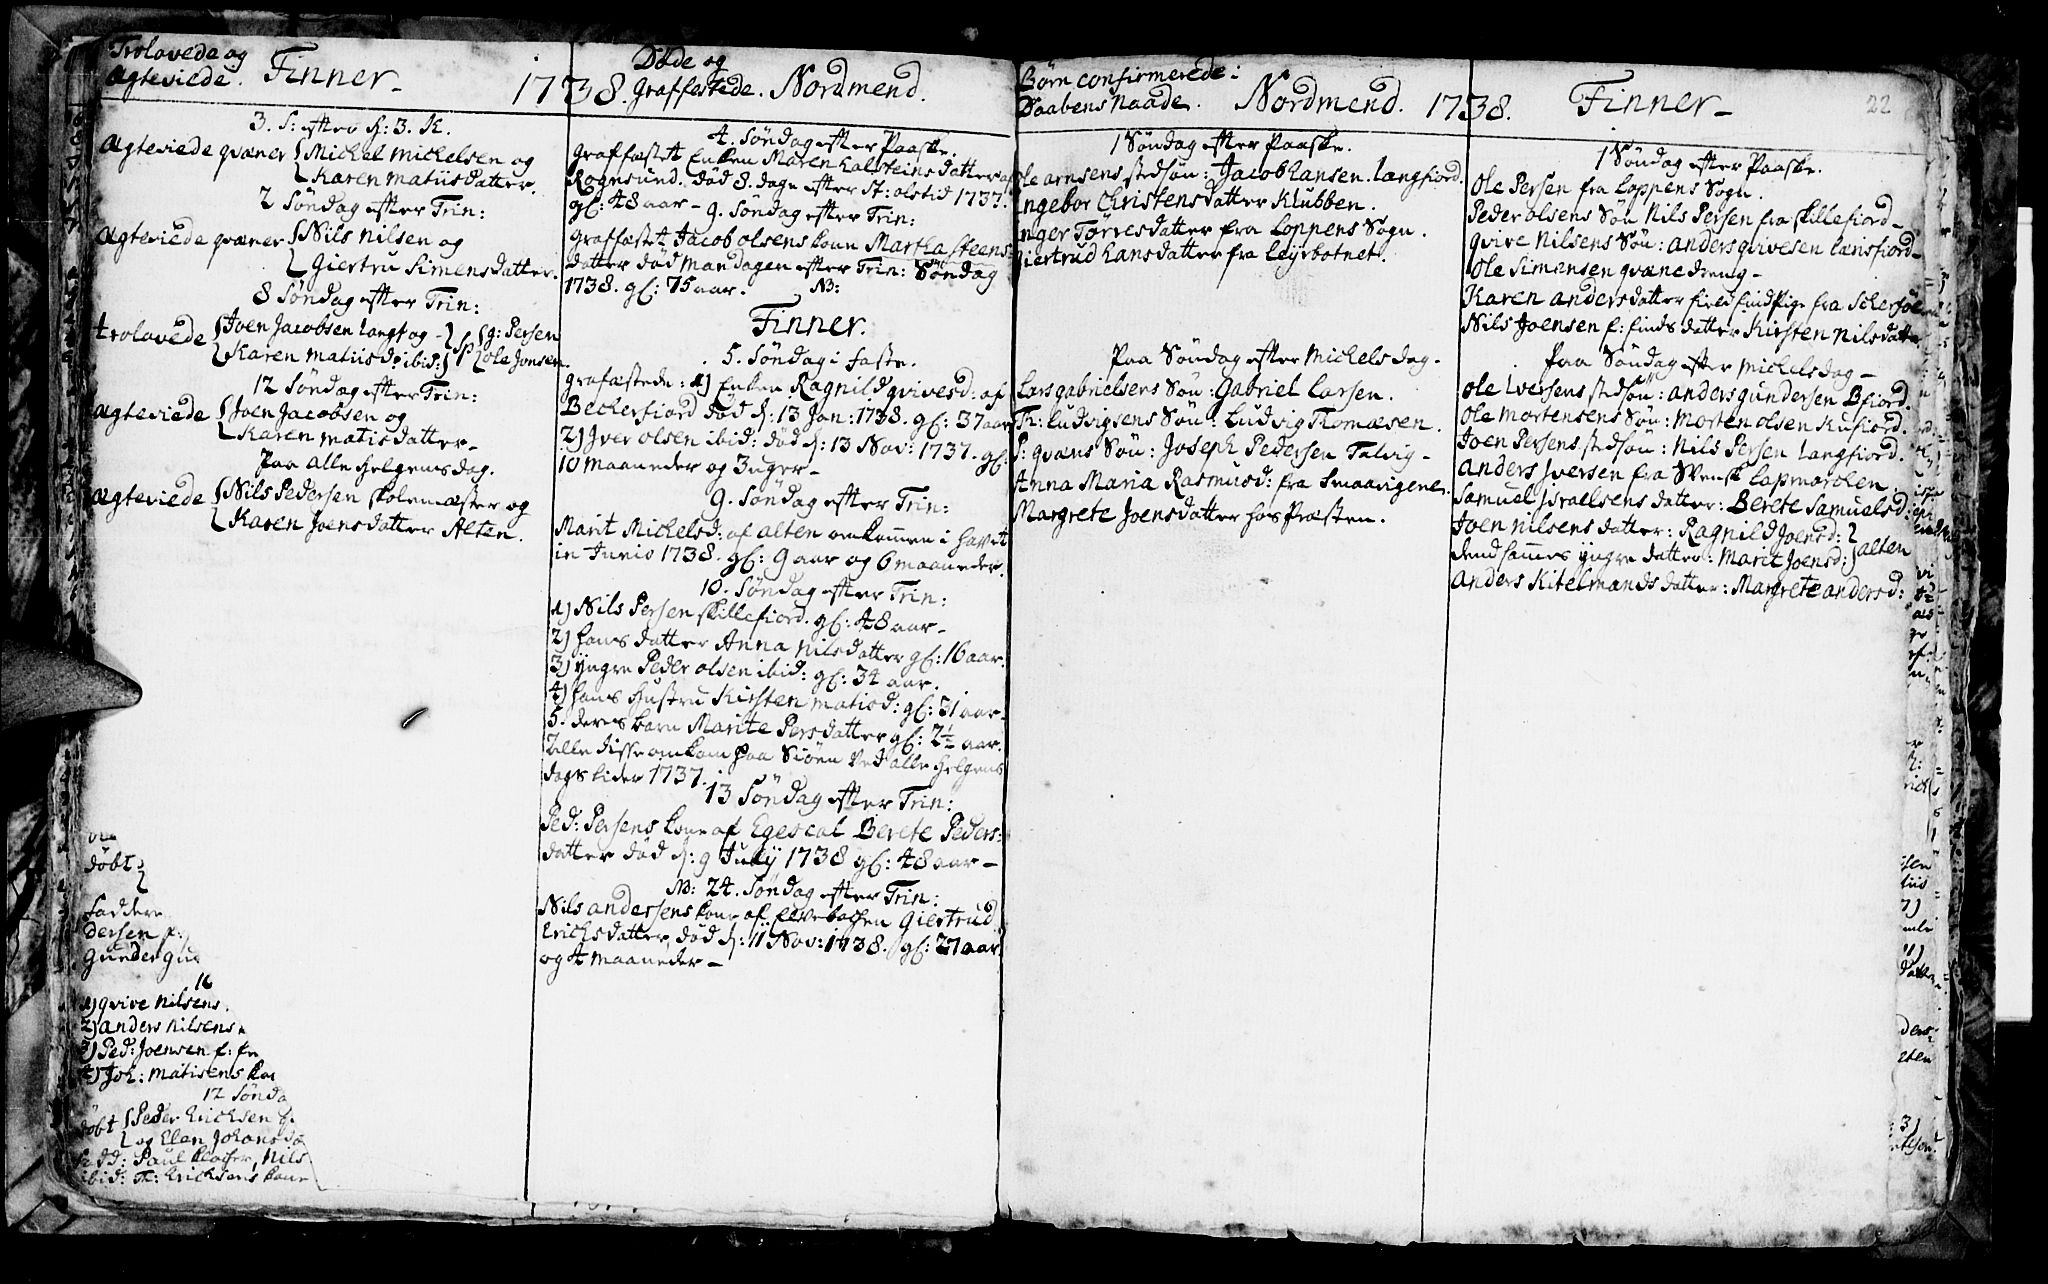 Trolovede og
Ægteviede. Finner. 1738.
3. S: efter H: 3. K.
Ægteviede qvæner Michel Michelsen og
Karen Matiisdatter.
2 Søndag efter Trin:
Ægteviede qvæner Nils Nilsen og
Giertru Simensdatter.
8 Søndag efter Trin:
trolovede Joen Jacobsen Langf og
Karen Matiisd: ibid: g: Persen
Ole Jonsen.
12 Søndag efter Trin:
Ægteviede Joen Jacobsen og
Karen Matisdatter
Paa alle Helgensdag.
Ægteviede Nils Pedersen skolemæster og
Karen Joensdatter Alten.
døbt
faddere
dersen f:
Gunder Gu
16
1) qvive Nilsens
2) anders Nilsens
3) Ped: Joensen f:
4) Joh: Matisens kon
12 Sønda
døbt Peder Erichsen
og Elen Johansdæ
fadd: Paul Klocker, Nils
ibid: Th: Erichsens kone
Døde og
Graffestede. Nordmend.
4. Søndag efter Paaske.
Graffæstet Enken Maren Halsteinsdatter af
Rognsund. død 8. dage efter St: olstid 1737.
gl: 48 aar - 9. Søndag efter Trin:
Graffæstet Jacob olsens kone Martha Steens=
datter død Mandagen efter Trin: Søndag
1738. gl: 75 aar. NB:
Finner.
5. Søndag i faste.
grafæstede: 1) Enken Ragnild qvivesd: af
Beckerfiord død d: 13 Jan: 1738. gl: 37 aar
2) Iver olsen ibid: død d: 13 Nov: 1737. gl:
10 maaneder og 3 uger
9. Søndag efter Trin:
Marit Michelsd: af alten omkommen i havet
in Junio 1738. gl: 9 aar og 6 maaneder.
10. Søndag efter Trin:
1) Nils Persen skillefiord. gl: 48 aar
2) hans datter Anna Nilsdatter gl: 16 aar.
3) yngre Peder olsen ibid: gl: 34 aar.
4) hans hustru Kirsten Matisd: gl: 31 aar
5. deres barn Marite Persdatter gl: 2½ aar.
alle disse omkom paa Siøen ved alle Helgens
dags tider 1737.
13 Søndag efter Trin:
Ped: Persens kone af Egescal Berete Peders=
datter død d: 9 July 1738 gl: 48 aar
NB: 24. Søndag efter Trin:
Nils andersens kone af Elvebachen Giertrud
Erichsdatter, død d: 11 Nov: 1738. gl: 27 aar
og 4 maaneder
Børn confirmerede i
Daabens Naade. Nordmend. 1738.
1 Søndag efter Paaske.
Ole arnsens stedsøn: Jacob Hansen. Langfiord.
Ingebor Christensdatter Klubben.
Inger Tørresdatter fra Loppens Sogn.
Giertrud Hansdatter fra Leyrbotnet.
Paa Søndag efter Michelsdag.
Lars gabrielsens Søn: Gabriel Larsen.
Th: Ludvigsens Søn: Ludvig Thomæsen.
P: qvæns Søn: Joseph Pedersen Talvig
Anna Maria Rasmusd: fra Smaavigene.
Margrete Joensdatter hos Præsten.
Finner 22
1 Søndag efter Paaske.
Ole Persen fra Loppens Sogn.
Peder olsens Søn Nils Persen fra skillefiord
qvive Nilsens Søn: anders qvivesen Lænsfiord
Ole Simensen qvæne dreng
Karen andersdatter field find pige fra
Nils Joensen f: finds datter Kirsten Nilsdatter
Paa Søndag efter Michelsdag
Ole Iversens stedsøn: anders gundersen Bfiord.
Ole Mortensens Søn: Morten olsen Kufiord.
Joen Persens stedsøn: Nils Persen Langfiord.
Anders Iversen fra Svensk Lapmarchen.
Samuel Israelsens datter: Berete Samuelsd:
Joen Nilsens datter: Ragnild Joensd:
dend sammes yngre datter: Marit Joensd: alten
Anders Kitelmands datter: Margrete andersd: